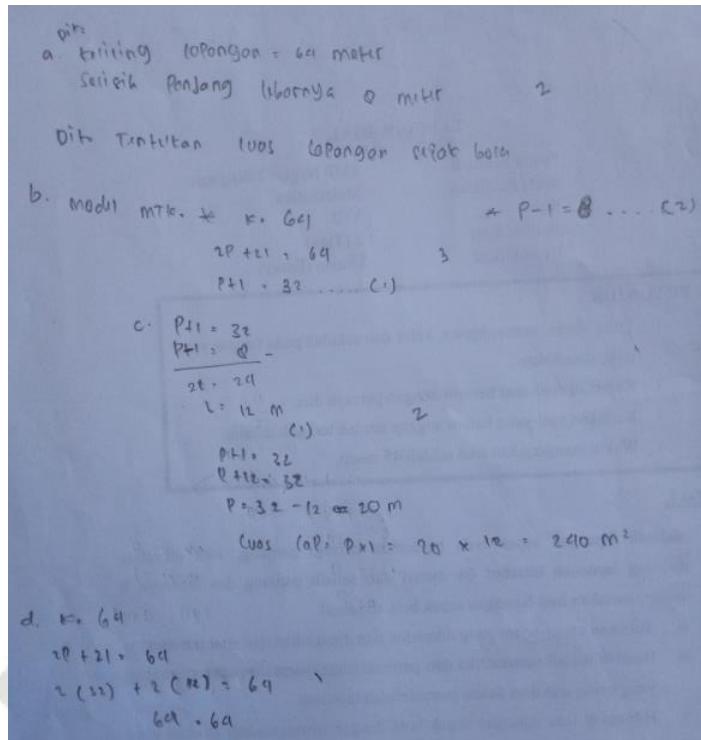 Dit:
a. keliling lapangan = 64 meter
Selisih Panjang lebarnya 8 meter 2
Dit Tentukan luas lapangan sepak bola
b. Model MTK. * K = 64 * P-l = 8 .... (2)
2P + 2l = 64 3
P+l = 32 ..... (1)
c. P+l = 32
P+l = 8 -
2l = 24
l = 12 m 2
(1)
P+l = 32
P+12 = 32
P = 32 - 12 = 20 m
Luas lap = P x l = 20 x 12 = 240 m²
d. K = 64
2P + 2l = 64
2 (32) + 2 (12) = 64
64 = 64